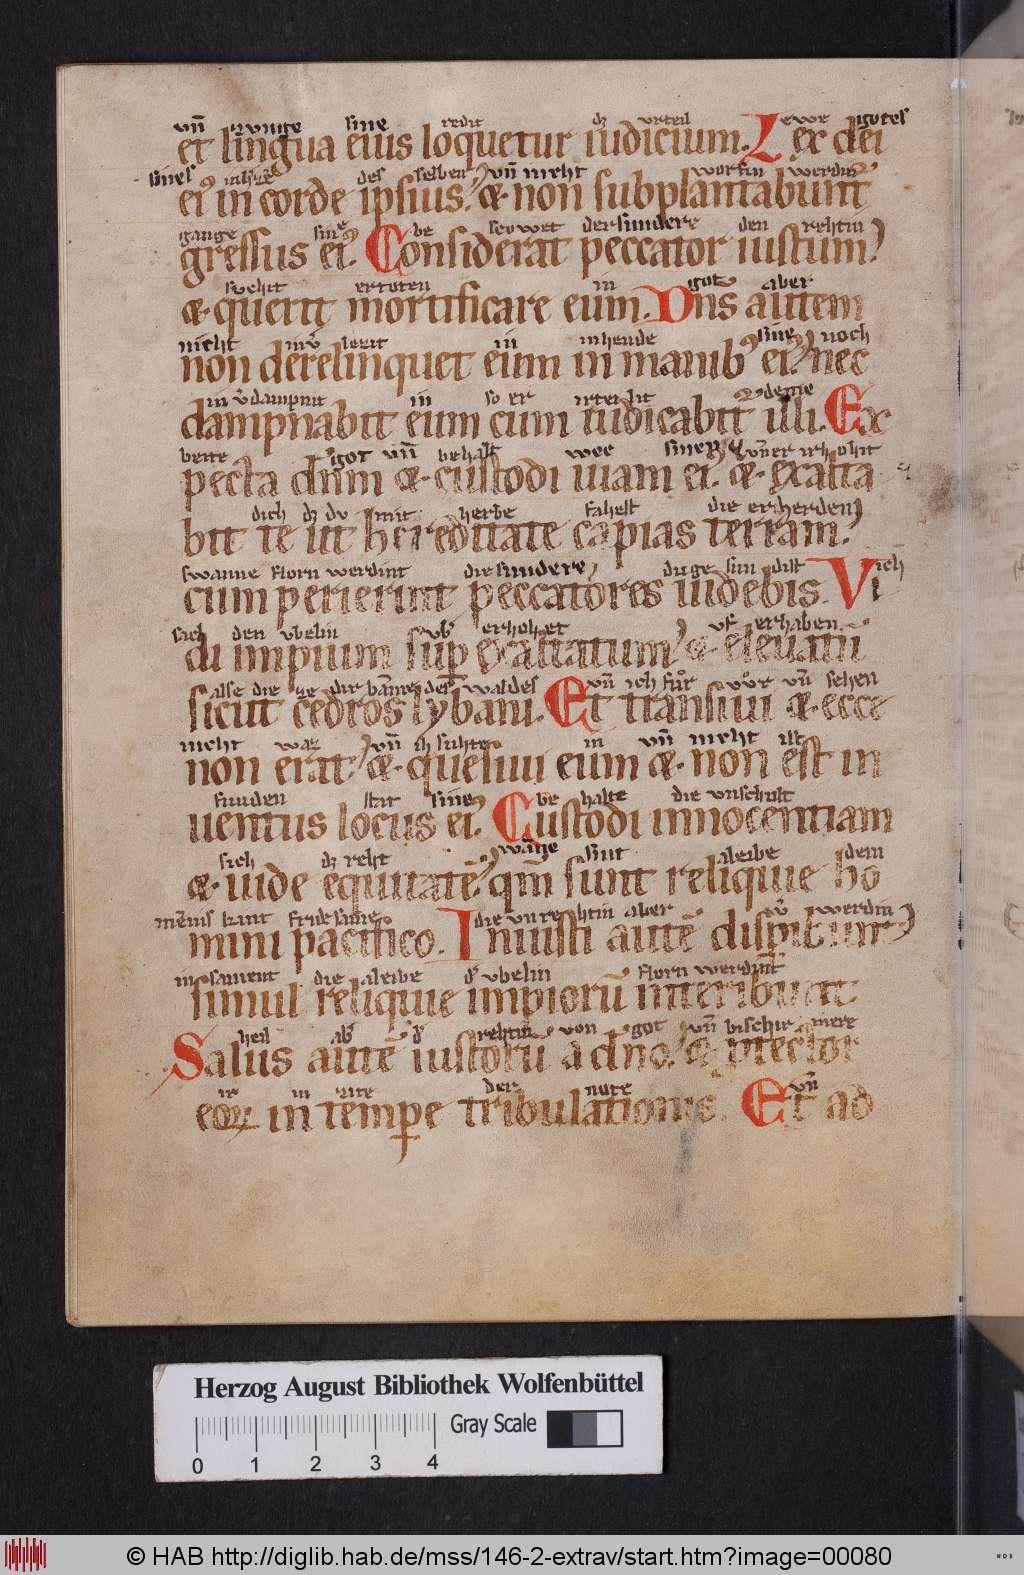 vn̄ zvnge sine redit dz vrteil ewe gotes
et lingua eius loquetur iudicium. Lex dei
sines des selben vn̄ nicht worfin werdin
ei⁹ in corde ipsius. & non subplantabunt̄
gange sine be scowet der sundere den rehtin
gressus ei⁹. Considerat peccator iustum.
suchit ertoten in got aber
& querit mortificare eum. Dn̄s autem
nicht in hende sine noch
non derelinquet eum in manib⁹ ei⁹. nec
in v̄dampnit in so er
dampnabit eum cum iudicabit̄ illi. Ex
beite got vn̄ behalt wee
pecta dn̄m & custodi uiam ei⁹. & exalta
dich dz dv mit herbe fahest die erherden
bit te ut hereditate capias terram.
swanne florn werdint die sundere
cum perierint peccatores uidebis. Vi
den vbelin erhohet vf erhaben
di impium sup̄ exaltatum. & eleuatū
alse die waldes vn̄ ich fur vn̄ sehen
sicut cedros lybani. Et transiui & ecce
nicht waz vn̄ in vn̄ nicht ist
non erat. & quesiui eum & non est in
funden stat sine be halte die vnschult
uentus locus ei⁹. Custodi innocentiam
sich dz reht sint aleibe dem
& uide equitatē. qm̄ sunt reliquie ho
die vnrehtin aber werdin
mini pacifico. Iniusti autē disp̄ibunt
die aleibe vbelin florn werdint
simul reliquie impiorū interibunt
heil rehtin von got vn̄
Salus autē iustorū a dno. & ptector
in der note vn̄
eoꝝ in tempe tribulationis. Et ad
Herzog August Bibliothek Wolfenbüttel
Gray Scale
0 1 2 3 4
© HAB http://diglib.hab.de/mss/146-2-extrav/start.htm?image=00080